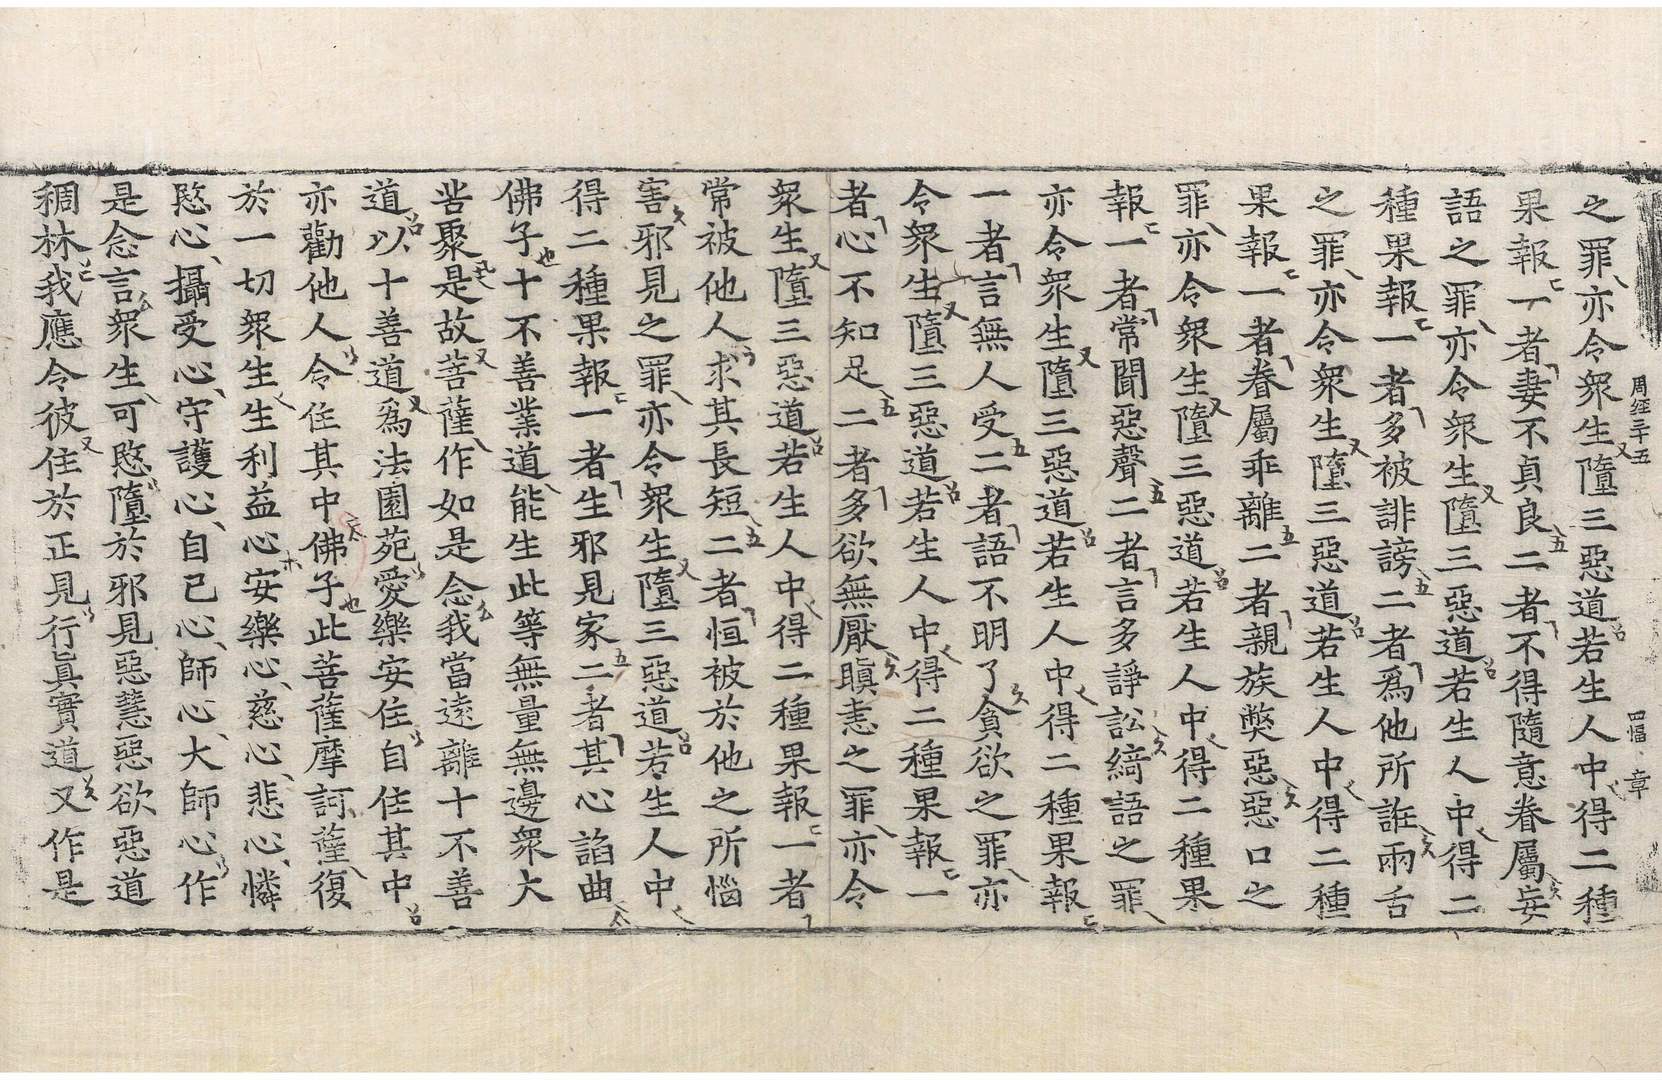 周經三十五 四幅 章
之罪亦令衆生墮三惡道若生人中得二種
果報一者妻不貞良二者不得隨意眷屬妄
語之罪亦令衆生墮三惡道若生人中得二
種果報一者多被誹謗二者爲他所誑兩舌
之罪亦令衆生墮三惡道若生人中得二種
果報一者眷屬乖離二者親族弊惡惡口之
罪亦令衆生墮三惡道若生人中得二種果
報一者常聞惡聲二者言多諍訟綺語之罪
亦令衆生墮三惡道若生人中得二種果報
一者言無人受二者語不明了貪欲之罪亦
令衆生墮三惡道若生人中得二種果報一
者心不知足二者多欲無厭瞋恚之罪亦令
衆生墮三惡道若生人中得二種果報一者
常被他人求其長短二者恒被於他之所惱
害邪見之罪亦令衆生墮三惡道若生人中
得二種果報一者生邪見家二者其心諂曲
佛子十不善業道能生此等無量無邊衆大
苦聚是故菩薩作如是念我當遠離十不善
道以十善道爲法園苑愛樂安住自住其中
亦勸他人令住其中佛子此菩薩摩訶薩復
於一切衆生生利益心安樂心慈心悲心憐
愍心攝受心守護心自己心師心大師心作
是念言衆生可愍墮於邪見惡慧惡欲惡道
稠林我應令彼住於正見行眞實道又作是